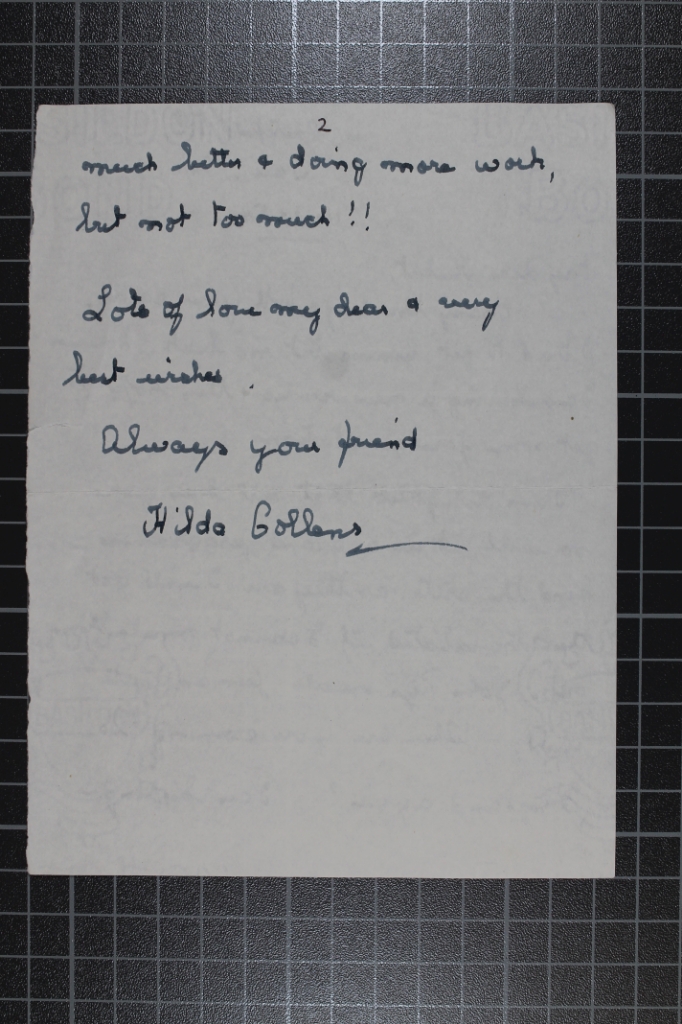 2
much better & doing more work,
but not too much !!
Lots of love my dear & every
best wishes.
Always your friend
Hilda Gollans